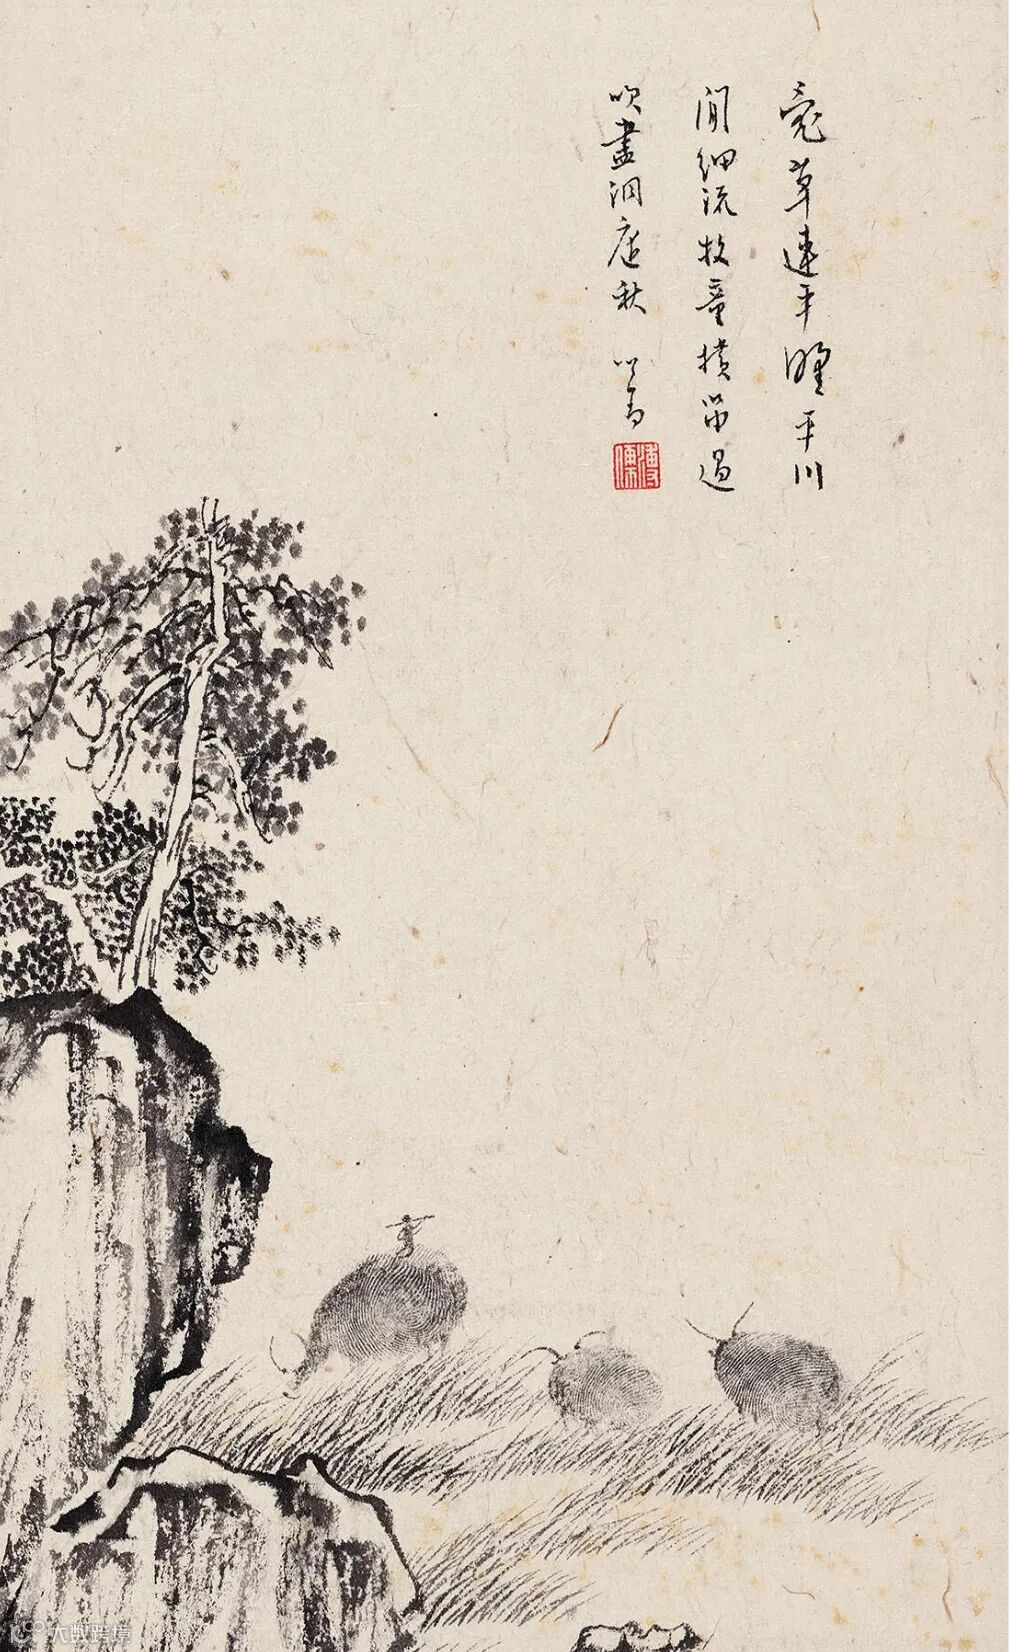 荒草連平野平川
間細流牧童橫笛過
吹盡洞庭秋 心畬
溥儒
大数跨境